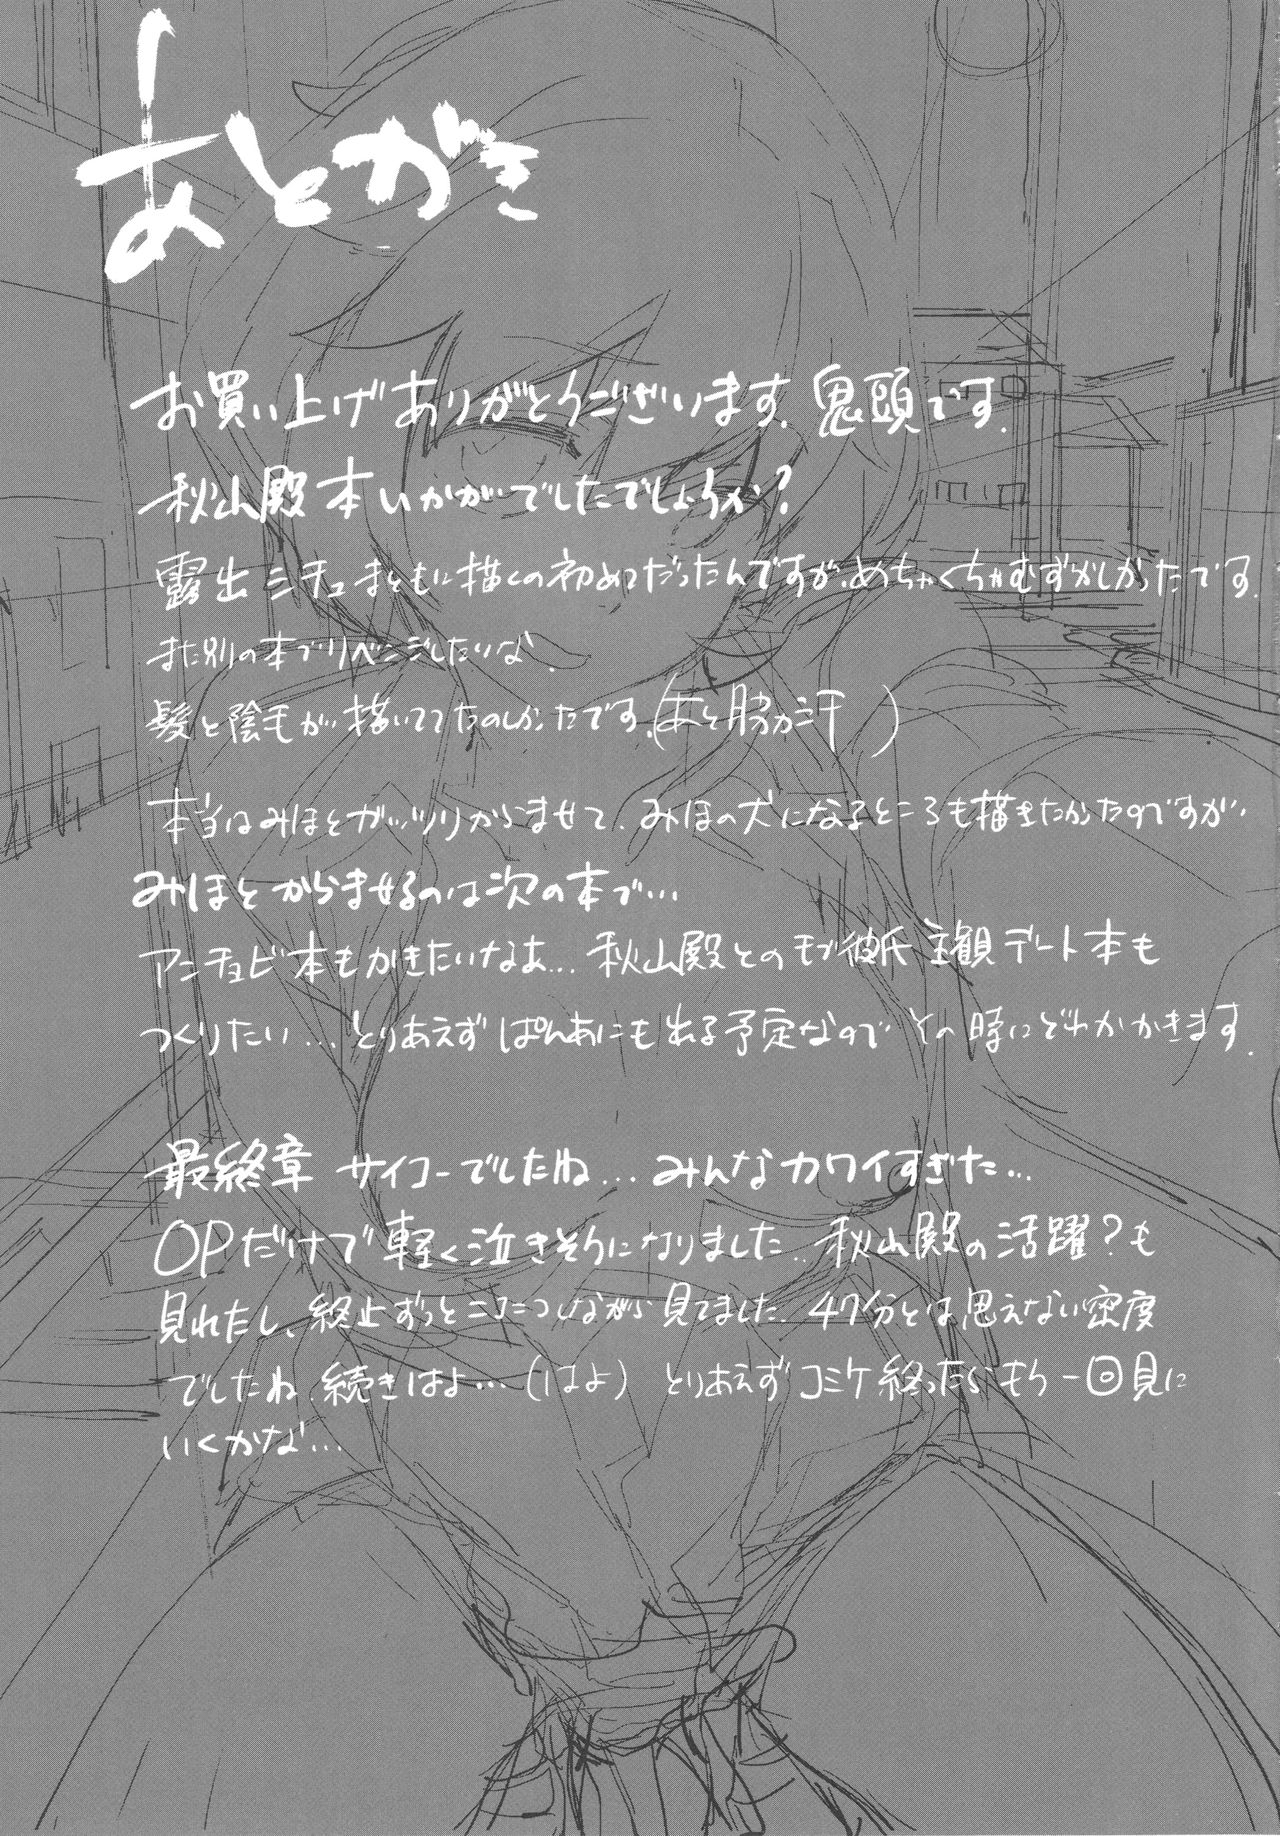 あとがき
お買い上げありがとうございます。鬼頭です。
秋山殿本いかがでしたでしょうか?
露出シチュまともに描くの初めてだったんですが、めちゃくちゃむずかしかったです。
また別の本でリベンジしたいな。
髪と陰毛が描いててたのしかったです。(あと脇か汗)
本当はみほとガッツリからませて、みほの犬になるところも描きたかたのですが、
みほとからませるのは次の本で…
アンチョビ本もかきたいなぁ… 秋山殿とのモブ彼氏主観デート本も
つくりたい… とりあえずぱんあにも出る予定なのでその時にどれかかきます。
最終章 サイコーでしたね… みんなカワイすぎた…
OPだけで軽く泣きそうになりました.. 秋山殿の活躍?も
見れたし、終止ずっとニコニコしながら見てました。47分とは思えない密度
でしたね、続きはよ…(はよ) とりあえずコミケ終ったらもう一回見に
いくかな…